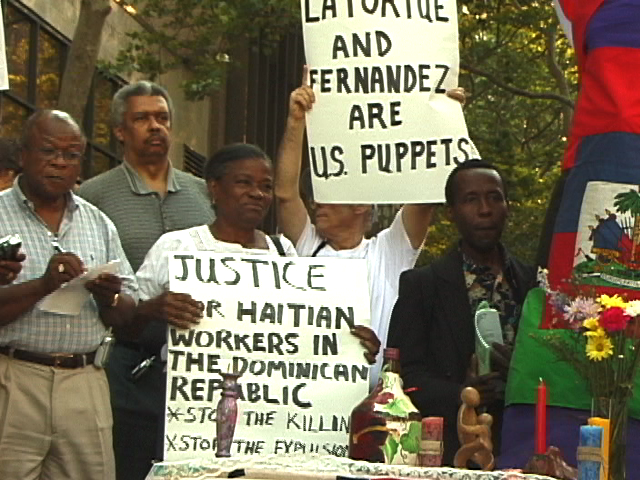 LATORTUE
AND
FERNANDEZ
ARE
U.S. PUPPETS
JUSTICE
FOR HAITIAN
WORKERS IN
THE DOMINICAN
REPUBLIC
*STOP THE KILLIN
XSTOP THE EXPULSION